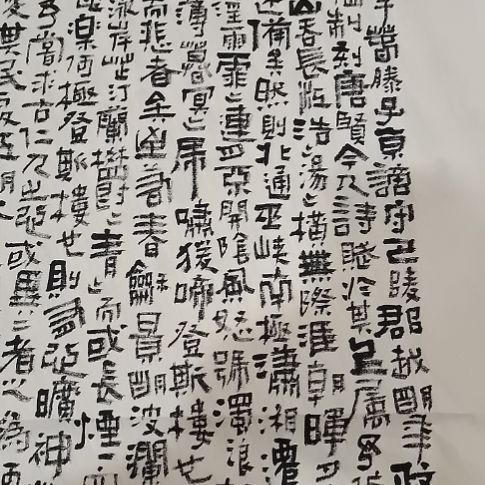 春滕子京謫守巴陵郡越明年政
制刻唐賢今人詩賦於其上屬予
吞長江浩〻湯〻橫無際涯朝暉夕
備矣然則北通巫峽南極瀟湘遷
淫雨霏〻連月不開陰風怒號濁浪
薄暮冥〻虎嘯猿啼登斯樓也
而悲者矣至若春龢景明波瀾
岸芷汀蘭郁〻青〻而或長煙一
樂何極登斯樓也則有心曠神
予嘗求古仁人之心或異二者之為